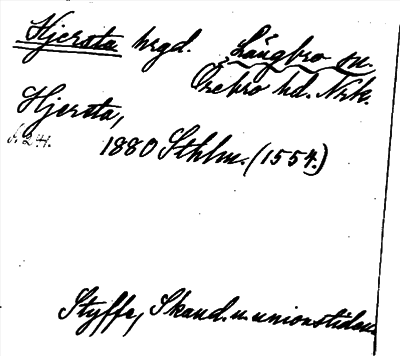 Hjersta hrgd. Längbro sn.
Örebro hd. Nrk.
Hjersta,
1880 Sthlm. (1554.)
Styffe, Skand. u. unionstiden